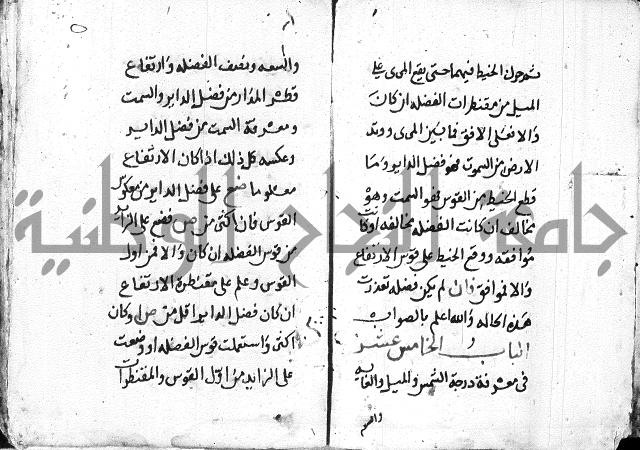 ثم حرك الخيط فيهما حتى يقع المرى على
الميل من مقنطرات الفضله ان كان
والا فعلى الافق فما بين المرى ووتد
الارض من السموت فهو فضل الداير وما
قطع الخيط من القوس فهو السمت وهو
مخالف ان كانت الفضله مخالفه او كانت
موافقه ووقع الخيط على قوس الارتفاع
والا فموافق وان لم يكن فضله تعذرت
هذه الحاله والله اعلم بالصواب
الباب الخامس عشر
فى معرفة درجة الشمس والميل والغايه
والسعه ونصف الفضله وارتفاع
قطر المدار من فضل الداير والسمت
ومعرفة السمت من فضل الداير
وعكسه كل ذلك اذا كان الارتفاع
معلوما ضع على فضل الداير من معكوس
القوس فان اكثر من ص فضع على الزايد
من قوس الفضله ان كان والا فمن اول
القوس وعلم على مقنطرة الارتفاع
ان كان فضل الداير اقل من ص او كان
اكثر واستعملت قوس الفضله او وضعت
على الزايد من اول القوس والمقنطرات
جامعة النجاح الوطنية